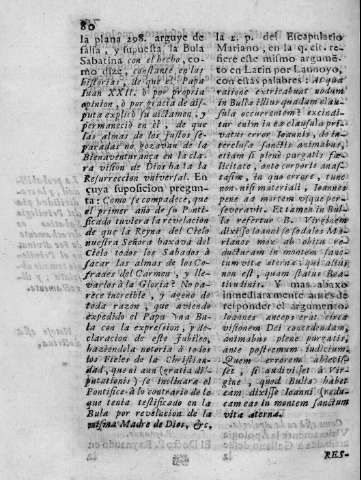 80
la plana 298. arguye de
falsa, y supuesta, la Bula
Sabatina con el hecho, co-
mo dize, constante en las
historias, de que el Papa
Juan XXII. ò por propria
opinion, ò por gracia de dis-
puta explicò su dictamen, y
permaneciò en èl, de que
las almas de los justos se-
paradas no gozavan de la
Bienaventurança en la cla-
ra vision de Dios hasta la
Resurreccion universal. En
cuya suposicion pregun-
ta: Como se compadece, que
el primer año de su Ponti-
ficado tuviera la revelacion
de que la Reyna del Cielo
nuestra Señora baxava del
Cielo todos los Sabados à
sacar las almas de los Co-
frades del Carmen, y lle-
varlos à la Gloria? No pa-
rece increible, y ageno de
toda razon, que aviendo
expedido el Papa una Bu-
la con la expression, y de-
claracion de este jubileo,
haziendola notoria à todos
los Fieles de la Christian-
dad, que ni aun (gratia dis-
putationis) se inclinara el
Pontifice à lo contrario de lo
que tenia testificado en la
Bula por revelacion de la
misma Madre de Dios, &c.
la 2. p. del Escapulario
Mariano, en la q. cit. re-
fiere este mismo argumẽ-
to en Latin por Launoyo,
con estas palabras: At qua
ratione extricabunt nodum
in Bullæ illius quadam clau-
sula occurrentem? excita-
tur enim in ea clausula pri-
vatus error Ioannis, de in-
terclusa sanctis animabus,
etiam si plenè purgatis fæ-
licitate, ante corporis anas-
tasim, in quo errore, tunc
non nisi materiali, Ioannes
penè ad mortem usque per-
severavit. Et tamen in Bul-
la refertur B. Virginem
dixisse Ioanni se sodales Ma-
rianos mox ab obitu re-
ducturam in montem sanc-
tum vitæ æternæ; qui aliud
non est, quam status Beat-
titudinis. Y mas abaxo
inmediatamente antes de
responder el argumento.
Ioannes anceps erat circa
visionem Dei concedendam
animabus plenè purgatis,
ante postremum iudicium.
Quem errorem abiecis-
set, si audivisset à Vir-
gine, quod Bulla habet
eam dixisse Ioanni (redu-
cam eas in montem sanctum
vitæ æternæ.
RES-